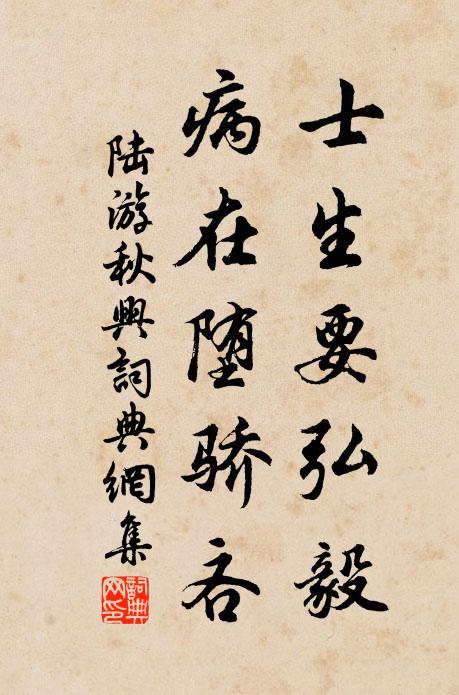 士生要弘毅
病在堕骄吝
陆游秋興詞典網集
詞典网印